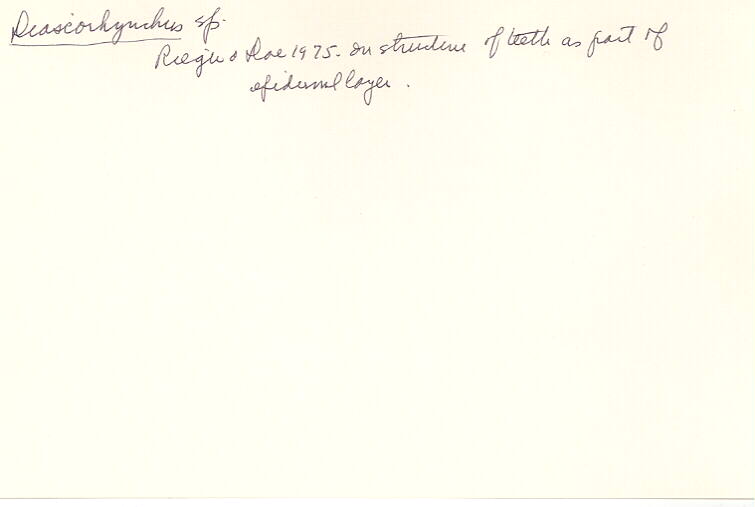 Diascorhynchus sp.
Rieger & Doe 1975 - on structure of teeth as part of
epidermal layer.